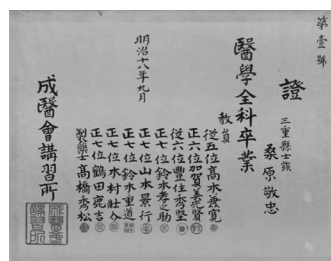 第壹號
證
三重縣士族
桑原敬忠
醫學全科卒業
教員
從五位高木兼寛
正六位加賀美光賢
從六位豊住秀堅
正七位鈴木孝之助
正七位山本景行
正七位鈴木重道
正七位木村壮介
正七位鶴田
製藥士高橋秀松
明治十八年九月
成醫會講習所
成醫會
講習所